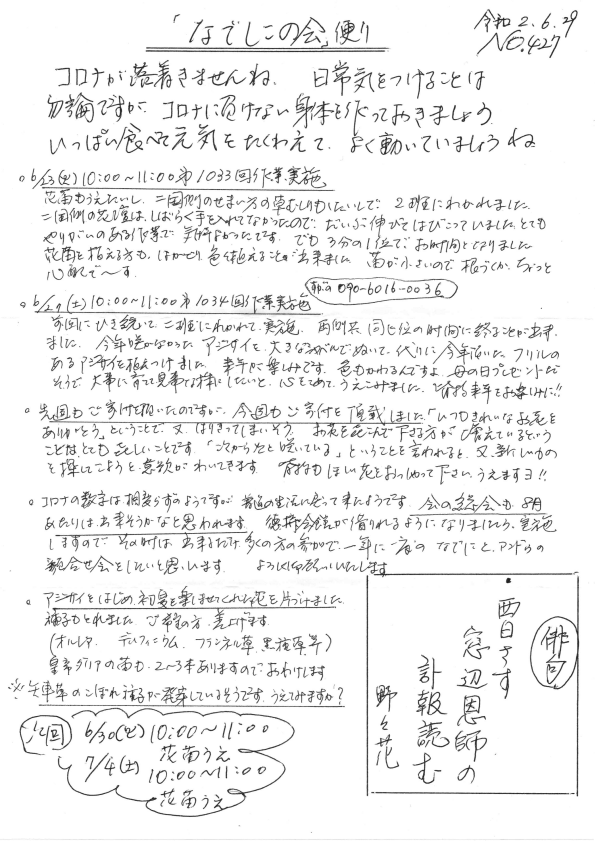 「なでしこの会」便り
令和2.6.29
NO.427
コロナが落着きませんね、 日常気をつけることは
勿論ですが、コロナに負けない身体を作っておきましょう。
いっぱい食べて元気をたくわえて、よく動いていましょうね
○6/23(火)10:00~11:00第1033回作業実施
花苗もうえたいし、二国側のせまい方の草むしりもしたいしで、2班にわかれました。
二国側の花壇は、しばらく手を入れてなかったので、だいぶ伸びてはびこっていました。とても
やりがいのある作業で、気持よかったです。でも3分の1位でお時間となりました
花苗を植える方も、はかどり、色々植えることが出来ました 苗が小さいので根づくか、ちょっと
心配で~す。
090-6016-0036
○6/27(土)10:00~11:00第1034回作業実施
前回にひき続いて二班にわかれて、実施、両側共同じ位の時間に終ることが出来
ました。今年咲かなかったアジサイを大きなのがんでぬいて、代りに今年咲いた、フリルの
あるアジサイを植えつけました。来年が楽しみです。色もかわるんですよ。母の日プレゼントだ
そうで大事に育て見事な株にしたいと、心をこめてうえこみました。皆様来年をお楽しみに!!
○先週もご寄付を頂いたのですが、今週もご寄付を頂戴しました「いつもきれいなお花を
ありがとう」ということで、又、はりきってしまいそう、お花を喜こんで下さる方が増えているという
ことはとても喜しいことです「次から次と咲いている」ということを言われると、又、新しいもの
を探してこようと意欲がわいてきます 皆様もほしい花をおっしゃって下さい、うえますヨ!!
○コロナの数字は相変らずのようですが普通の生活に戻って来たようです。会の総会も、8月
あたりは出来そうかなと思われます。 会館が借りれるようになりましたら、実施
しますので、その時は、出来るだけ多くの方の参加で、一年に一度の なでしこと、アンドウの
顔合せ会をしたいと思います。 よろしくお願いいたします
○アジサイをはじめ、初夏を楽しませてくれた花を片づけました。
種子もとれました ご希望の方、差上げます。
(オルレヤ、 デルフィニウム、フランネル草、黒種草等)
皇帝ダリアの苗も、2~3本ありますので、おわけします
※矢車草のこぼれ種子が発芽しているそうです。うえてみますか?
次回
6/30(火)10:00~11:00
花苗うえ
7/4(土)
10:00~11:00
花苗うえ
俳句
西日さす
窓辺恩師の
訃報読む
野々花